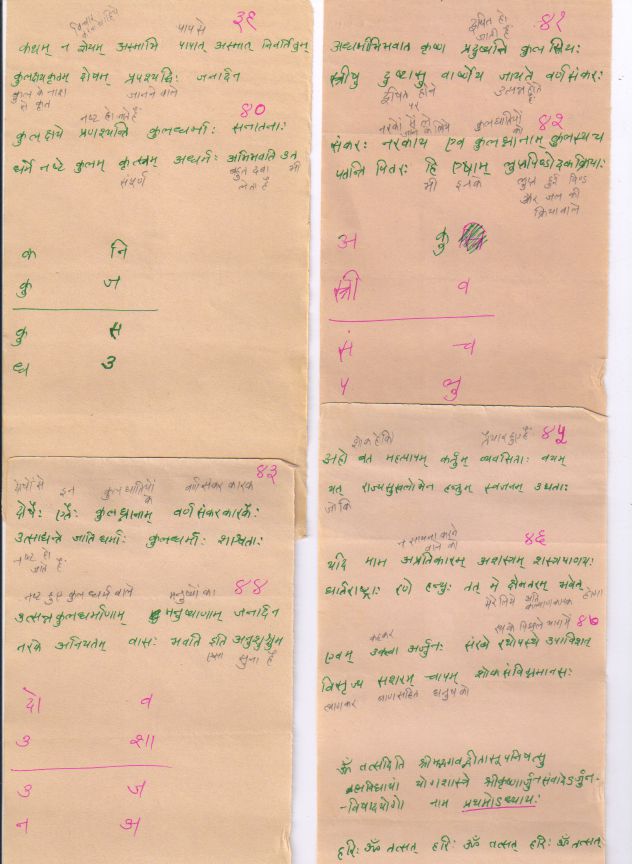 ३९
विचार
करना चाहिये
पाप से
कथम् न ज्ञेयम् अस्माभि पापात् अस्मात् निवर्तितुम्
कुलक्षयकृतम् दोषम् प्रपश्यद्भिः जनार्दन
कुल के नाश से कृत
जानने वाले
४०
नष्ट हो जाते हैं
कुलक्षये प्रणश्यन्ति कुलधर्माः सनातनाः
धर्मे नष्टे कुलम् कृत्स्नम् अधर्मः अभिभवति उत
संपूर्ण
बहुत दबा लेता है
भी
क नि
कु ज
कु स
ध उ
४१
दूषित हो जाती हैं
अधर्माभिभवात् कृष्ण प्रदुष्यन्ति कुलस्त्रियः
स्त्रीषु दुष्टासु वार्ष्णेय जायते वर्णसंकरः
दूषित होने पर
उत्पन्न होता है
४२
नरकों में ले जाने के लिये
कुलघातियों को
संकरः नरकाय एव कुलघ्नानाम् कुलस्य च
पतन्ति पितरः हि एषाम् लुप्तपिण्डोदकक्रियाः
भी इनके
लुप्त हुई पिण्ड और जल की क्रिया वाले
अ कु
स्त्री व
सं च
प लु
४३
दोषों से इन कुलघातियों के वर्णसंकर कारक
दोषैः एतैः कुलघ्नानाम् वर्णसंकरकारकैः
उत्साद्यन्ते जातिधर्माः कुलधर्माः शाश्वताः
नष्ट हो जाते हैं
४४
नष्ट हुए कुलधर्म वाले मनुष्यों का
उत्सन्नकुलधर्माणाम् मनुष्याणाम् जनार्दन
नरके अनियतम् वासः भवति इति अनुशुश्रुम
ऐसा सुना है
दो व
उ शा
उ ज
न अ
४५
शोक है कि
तैयार हुए हैं
अहो बत महत्पापम् कर्तुम् व्यवसिताः वयम्
यत् राज्यसुखलोभेन हन्तुम् स्वजनम् उद्यताः
जो कि
४६
न सामना करने वाले को
यदि माम अप्रतिकारम् अशस्त्रम् शस्त्रपाणयः
धार्तराष्ट्राः रणे हन्युः तत् मे क्षेमतरम् भवेत्
मेरे लिये अति कल्याणकारक होगा
४७
कहकर
रथ के पिछले भाग में
एवम् उक्त्वा अर्जुनः संख्ये रथोपस्थे उपाविशत्
विसृज्य सशरम् चापम् शोकसंविग्नमानसः
त्यागकर बाणसहित धनुष को
ॐ तत्सदिति श्रीमद्भगवद्गीतासूपनिषत्सु
ब्रह्मविद्यायां योगशास्त्रे श्रीकृष्णार्जुनसंवादेऽर्जुन-
-विषादयोगो नाम प्रथमोऽध्यायः
हरिः ॐ तत्सत् हरिः ॐ तत्सत् हरिः ॐ तत्सत्